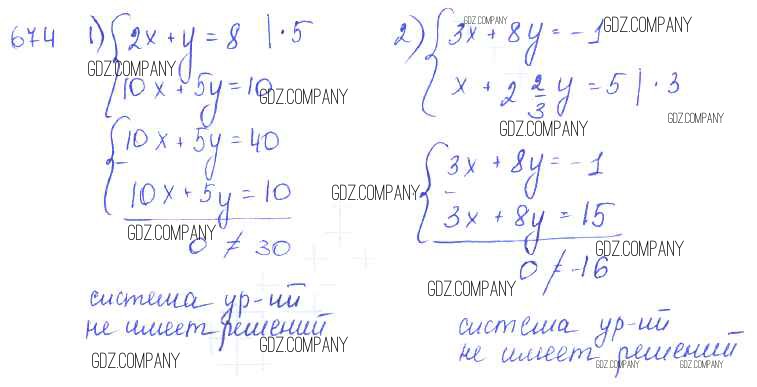 674 1) { 2x + y = 8 | · 5
10x + 5y = 10
{ 10x + 5y = 40
−
10x + 5y = 10
0 ≠ 30
система ур-ий
не имеет решений
2) { 3x + 8y = -1
x + 2 2/3 y = 5 | · 3
{ 3x + 8y = -1
−
3x + 8y = 15
0 ≠ -16
система ур-ий
не имеет решений
GDZ.COMPANY
GDZ.COMPANY
GDZ.COMPANY
GDZ.COMPANY
GDZ.COMPANY
GDZ.COMPANY
GDZ.COMPANY
GDZ.COMPANY
GDZ.COMPANY
GDZ.COMPANY
GDZ.COMPANY
GDZ.COMPANY
GDZ.COMPANY
GDZ.COMPANY